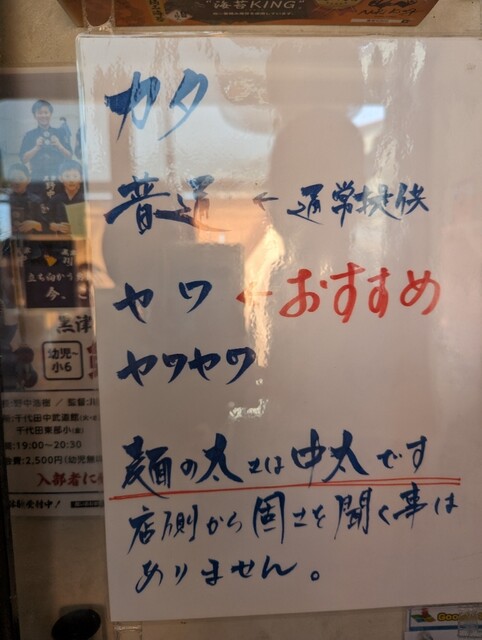 "海苔KING"
カタ
普通 ← 通常提供
ヤワ ← おすすめ
ヤワヤワ
麺の太さは中太です
店側から固さを聞く事は
ありません。
立ち向かう
今、
幼児~
小6
千代田中武道館
千代田東部小
19:00~20:30
2,500円
入部者に
Goo